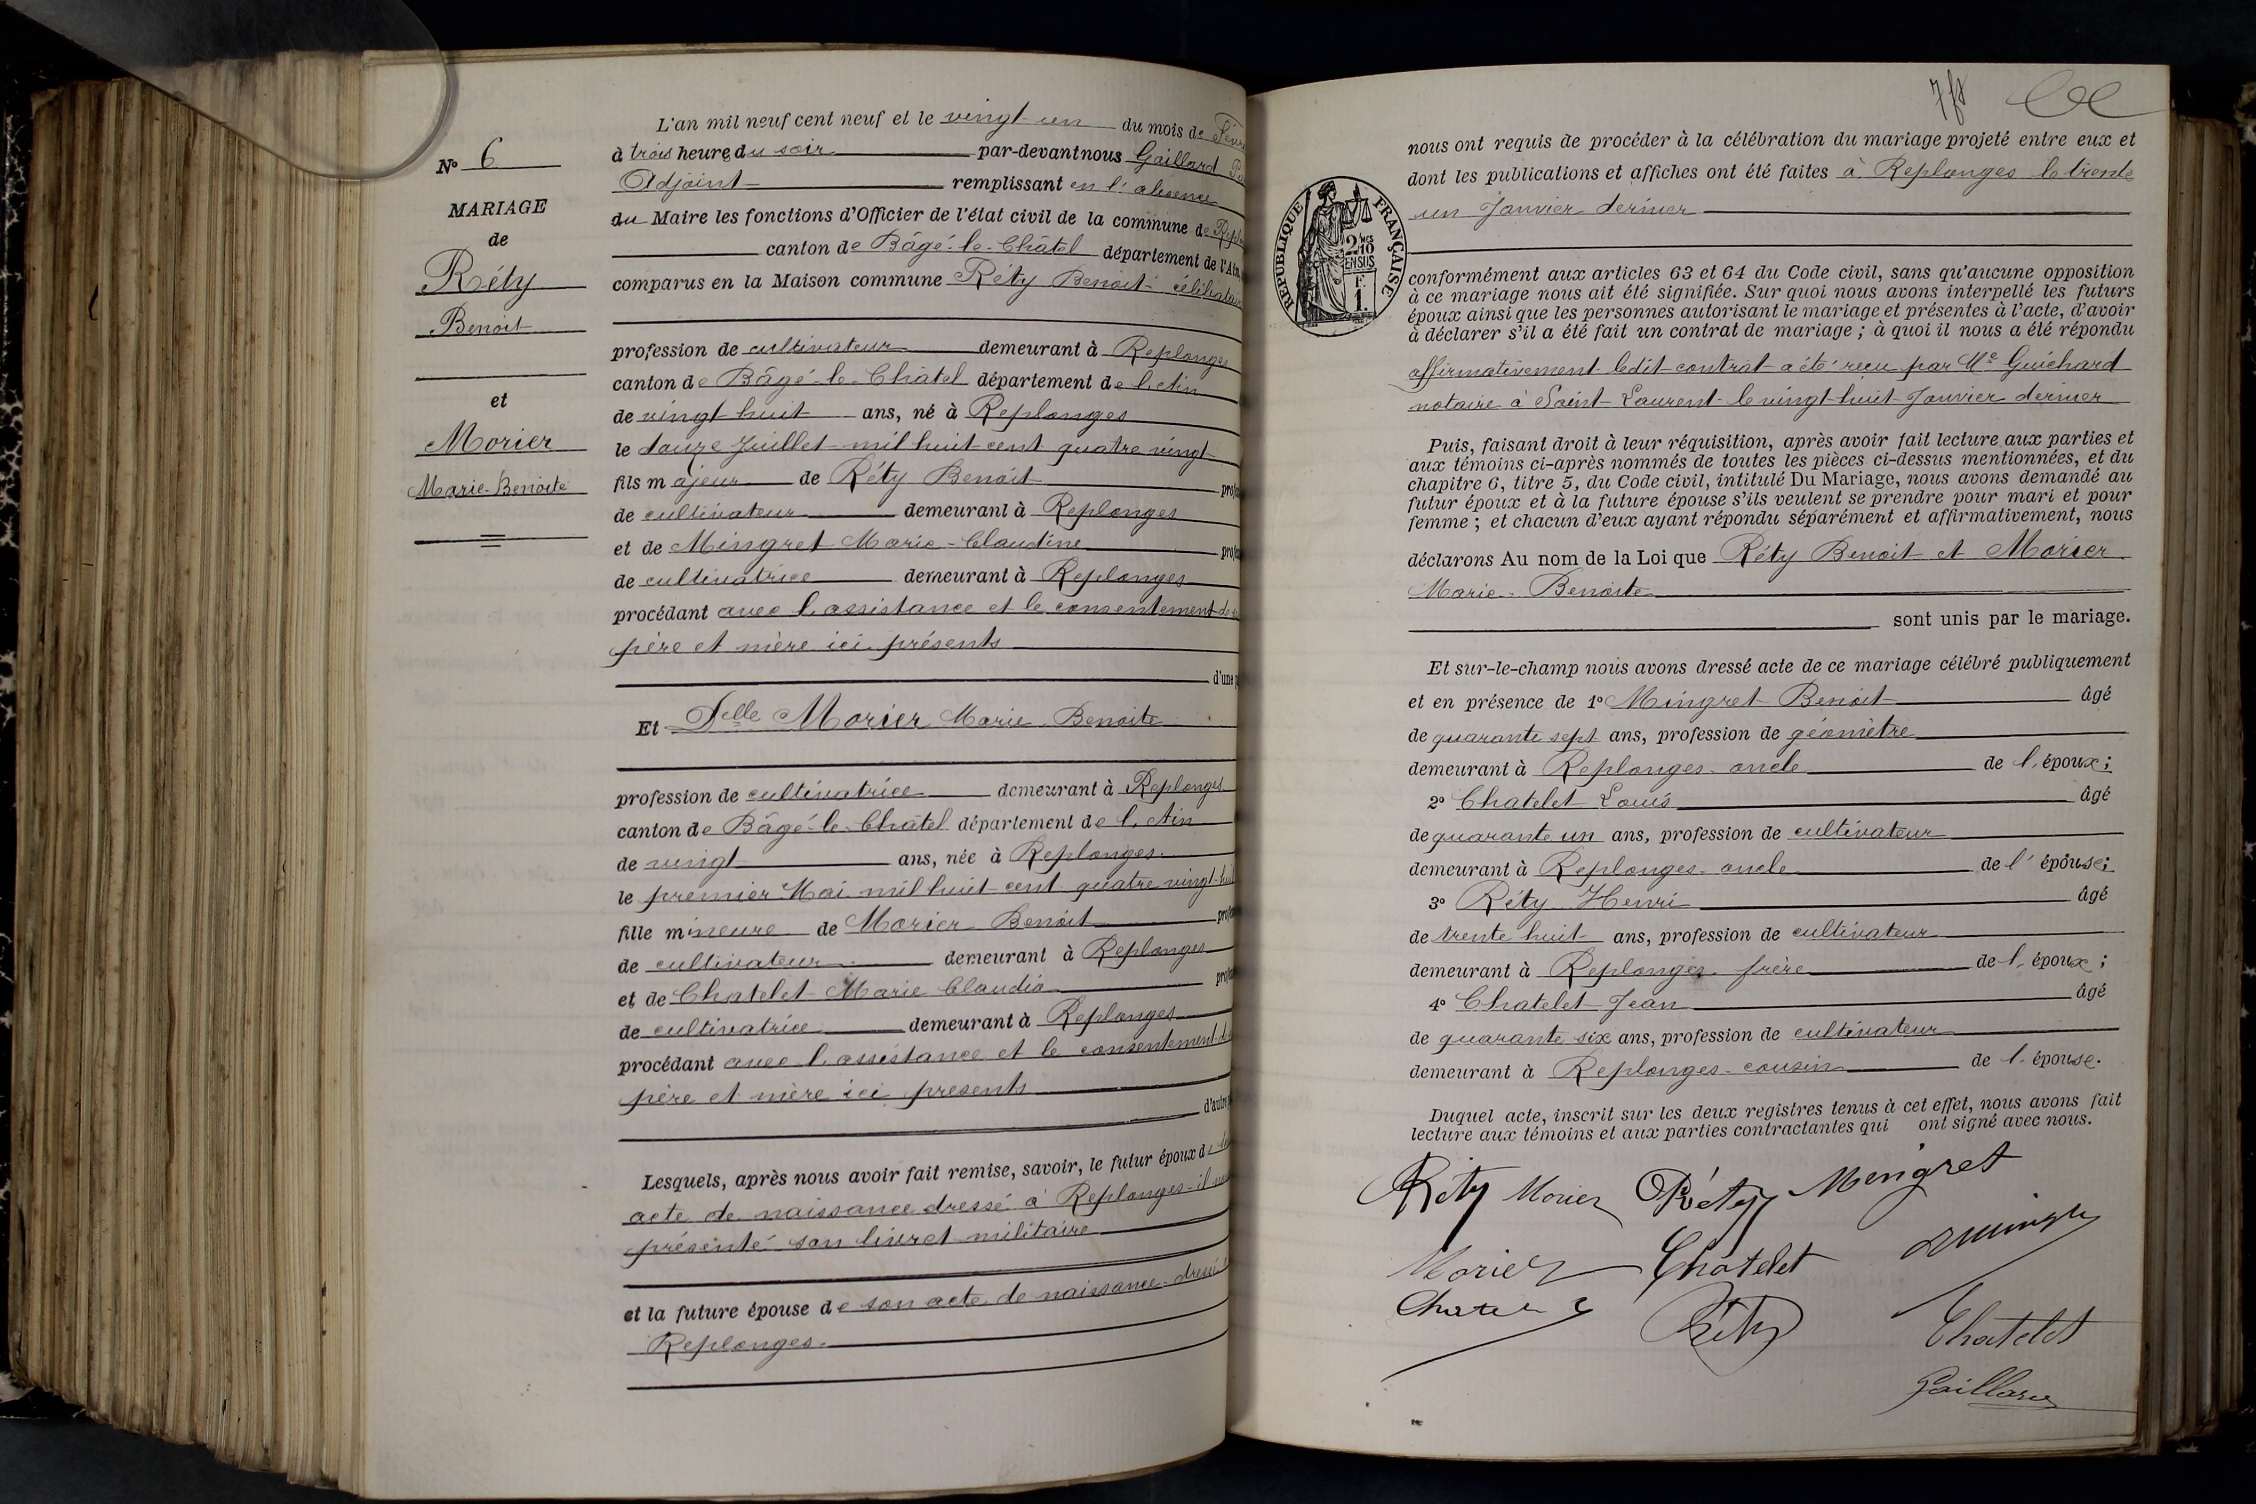 N° 6
MARIAGE
de
Réty
Benoit
et
Morier
Marie-Benoite
L'an mil neuf cent neuf et le vingt un du mois de
à trois heure du soir par-devant nous Gaillard
Adjoint remplissant en l'absence
du Maire les fonctions d'Officier de l'état civil de la commune de
canton de Bâgé-le-Châtel département de l'Ain,
comparus en la Maison commune Réty Benoit célibataire
profession de cultivateur demeurant à Replonges
canton de Bâgé-le-Châtel département de l'Ain
de vingt huit ans, né à Replonges
le douze Juillet mil huit cent quatre vingt
fils majeur de Réty Benoit
de cultivateur demeurant à Replonges
et de Mingret Marie-Claudine
de cultivatrice demeurant à Replonges
procédant avec l'assistance et le consentement de
père et mère ici présents
d'une
Et Delle Morier Marie Benoite
profession de cultivatrice demeurant à Replonges
canton de Bâgé-le-Châtel département de l'Ain
de vingt ans, née à Replonges
le premier Mai mil huit cent quatre vingt
fille mineure de Morier Benoit
de cultivateur demeurant à Replonges
et de Chatelet Marie Claudia
de cultivatrice demeurant à Replonges
procédant avec l'assistance et le consentement
père et mère ici présents
d'autre
Lesquels, après nous avoir fait remise, savoir, le futur époux de
acte de naissance dressé à Replonges - il
présenté son livret militaire
et la future épouse de son acte de naissance dressé
Replonges.
nous ont requis de procéder à la célébration du mariage projeté entre eux et
dont les publications et affiches ont été faites à Replonges le trente
un Janvier dernier
RÉPUBLIQUE FRANÇAISE
2 10es
EN SUS
F.
1.
conformément aux articles 63 et 64 du Code civil, sans qu'aucune opposition
à ce mariage nous ait été signifiée. Sur quoi nous avons interpellé les futurs
époux ainsi que les personnes autorisant le mariage et présentes à l'acte, d'avoir
à déclarer s'il a été fait un contrat de mariage ; à quoi il nous a été répondu
affirmativement ledit contrat a été reçu par Me Guichard
notaire à Saint Laurent le vingt huit Janvier dernier
Puis, faisant droit à leur réquisition, après avoir fait lecture aux parties et
aux témoins ci-après nommés de toutes les pièces ci-dessus mentionnées, et du
chapitre 6, titre 5, du Code civil, intitulé Du Mariage, nous avons demandé au
futur époux et à la future épouse s'ils veulent se prendre pour mari et pour
femme ; et chacun d'eux ayant répondu séparément et affirmativement, nous
déclarons Au nom de la Loi que Réty Benoit et Morier
Marie-Benoite
sont unis par le mariage.
Et sur-le-champ nous avons dressé acte de ce mariage célébré publiquement
et en présence de 1° Mingret Benoit âgé
de quarante sept ans, profession de géomètre
demeurant à Replonges oncle de l'époux ;
2° Chatelet Louis âgé
de quarante un ans, profession de cultivateur
demeurant à Replonges oncle de l'épouse ;
3° Réty Henri âgé
de trente huit ans, profession de cultivateur
demeurant à Replonges frère de l'époux ;
4° Chatelet Jean âgé
de quarante six ans, profession de cultivateur
demeurant à Replonges cousin de l'épouse.
Duquel acte, inscrit sur les deux registres tenus à cet effet, nous avons fait
lecture aux témoins et aux parties contractantes qui ont signé avec nous.
Réty Morier Réty Mingret
Morier Chatelet
Réty Chatelet
Gaillard